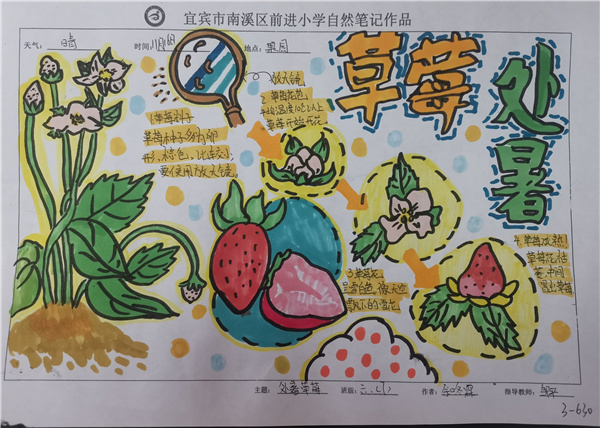 宜宾市南溪区前进小学自然笔记作品
天气：晴 时间： 地点：果园
草莓
处暑
放大镜
1.草莓种子
草莓种子多为卵
形，棕色，比较小，
要使用放大镜。
2.草莓花苞
平均温度10℃以上
草莓开始开花。
3.草莓花
呈雪白色，像天空
飘下的雪花
4.草莓成熟
草莓花枯
萎，中间
冒出草莓
主题：处暑草莓 班级： 作者： 指导教师：
3-630